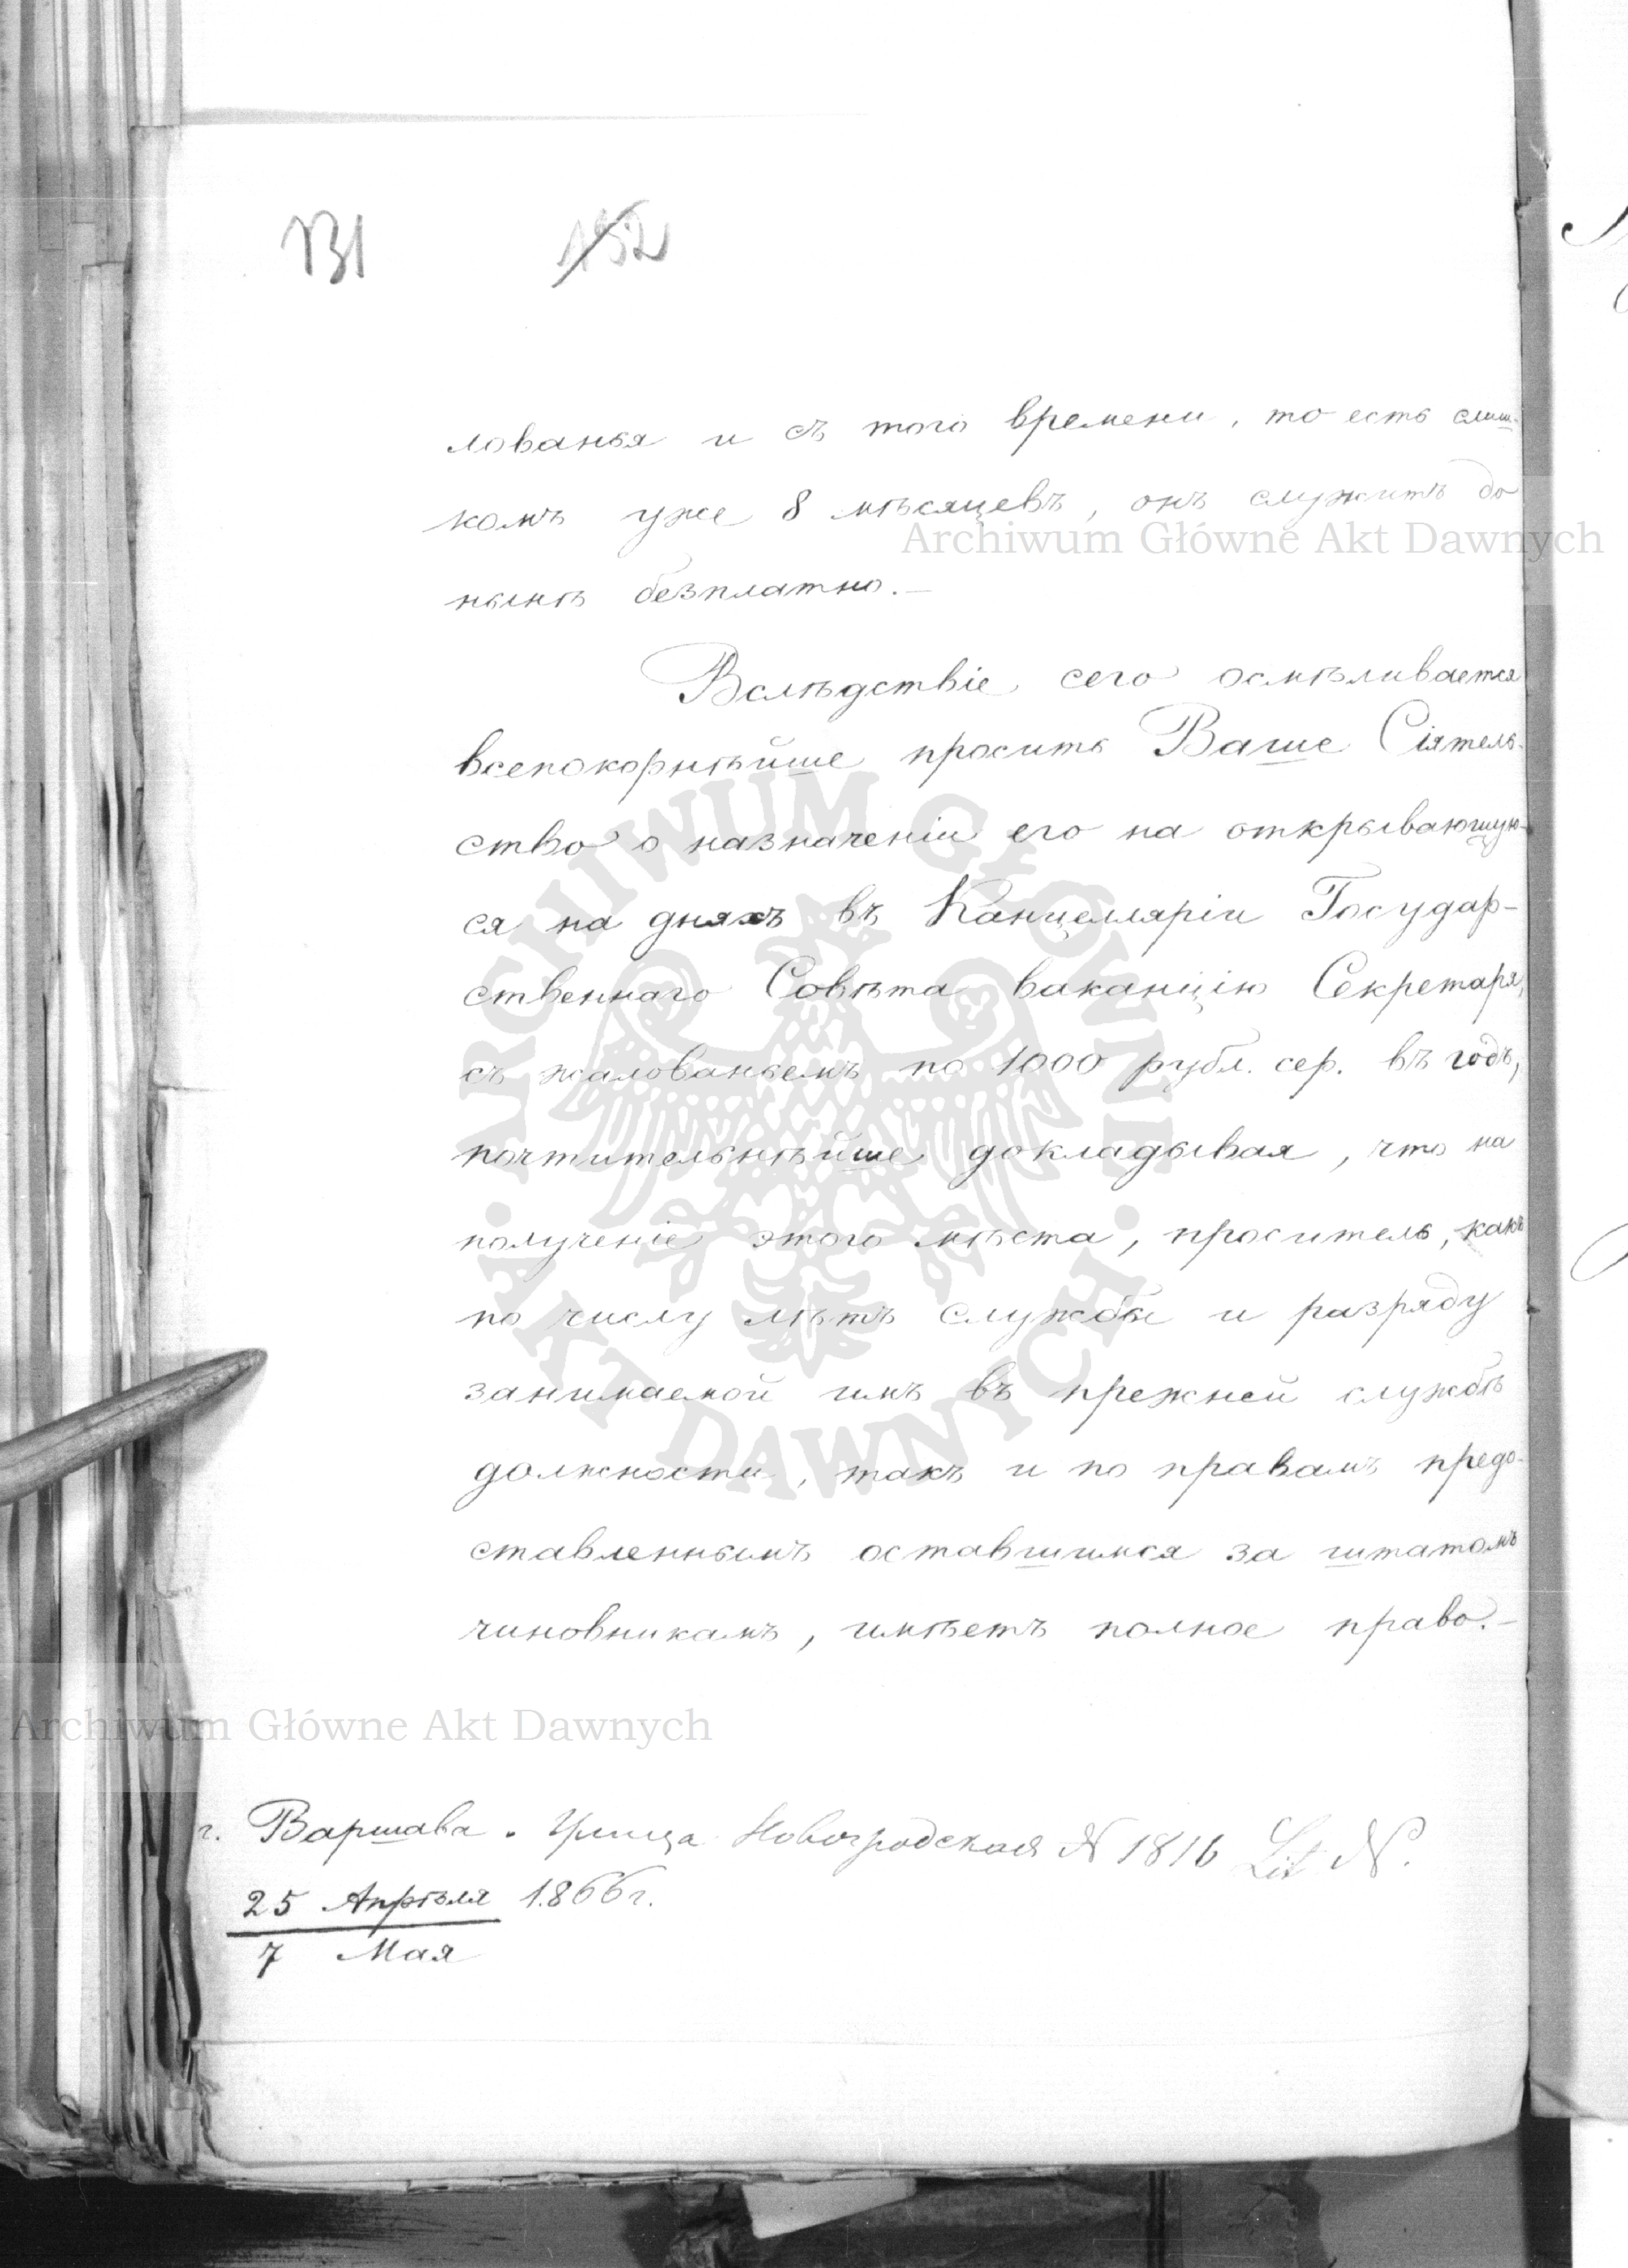 131 152
лованья и съ того времени, то есть слиш-
комъ уже 8 мѣсяцевъ, онъ служитъ до
Archiwum Główne Akt Dawnych
нынѣ безплатно.—
Вслѣдствіе сего осмѣливается
всепокорнѣйше просить Ваше Сіятель-
ство о назначеніи его на открывающую-
ся на дняхъ въ Канцеляріи Государ-
ственнаго Совѣта ваканцію Секретаря,
съ жалованьемъ по 1000 рубл. сер. въ годъ,
почтительнѣйше докладывая, что на
полученіе этого мѣста, проситель, какъ
по числу лѣтъ службы и разряду
занимаемой имъ въ прежней службѣ
должности, такъ и по правамъ предо-
ставленнымъ оставшимся за штатомъ
чиновникамъ, имѣетъ полное право.—
ARCHIWUM GŁÓWNE · AKT DAWNYCH ·
Archiwum Główne Akt Dawnych
г. Варшава. Улица Новогродская N 1816 Lit N.
25 Апрѣля 1866 г.
7 Мая